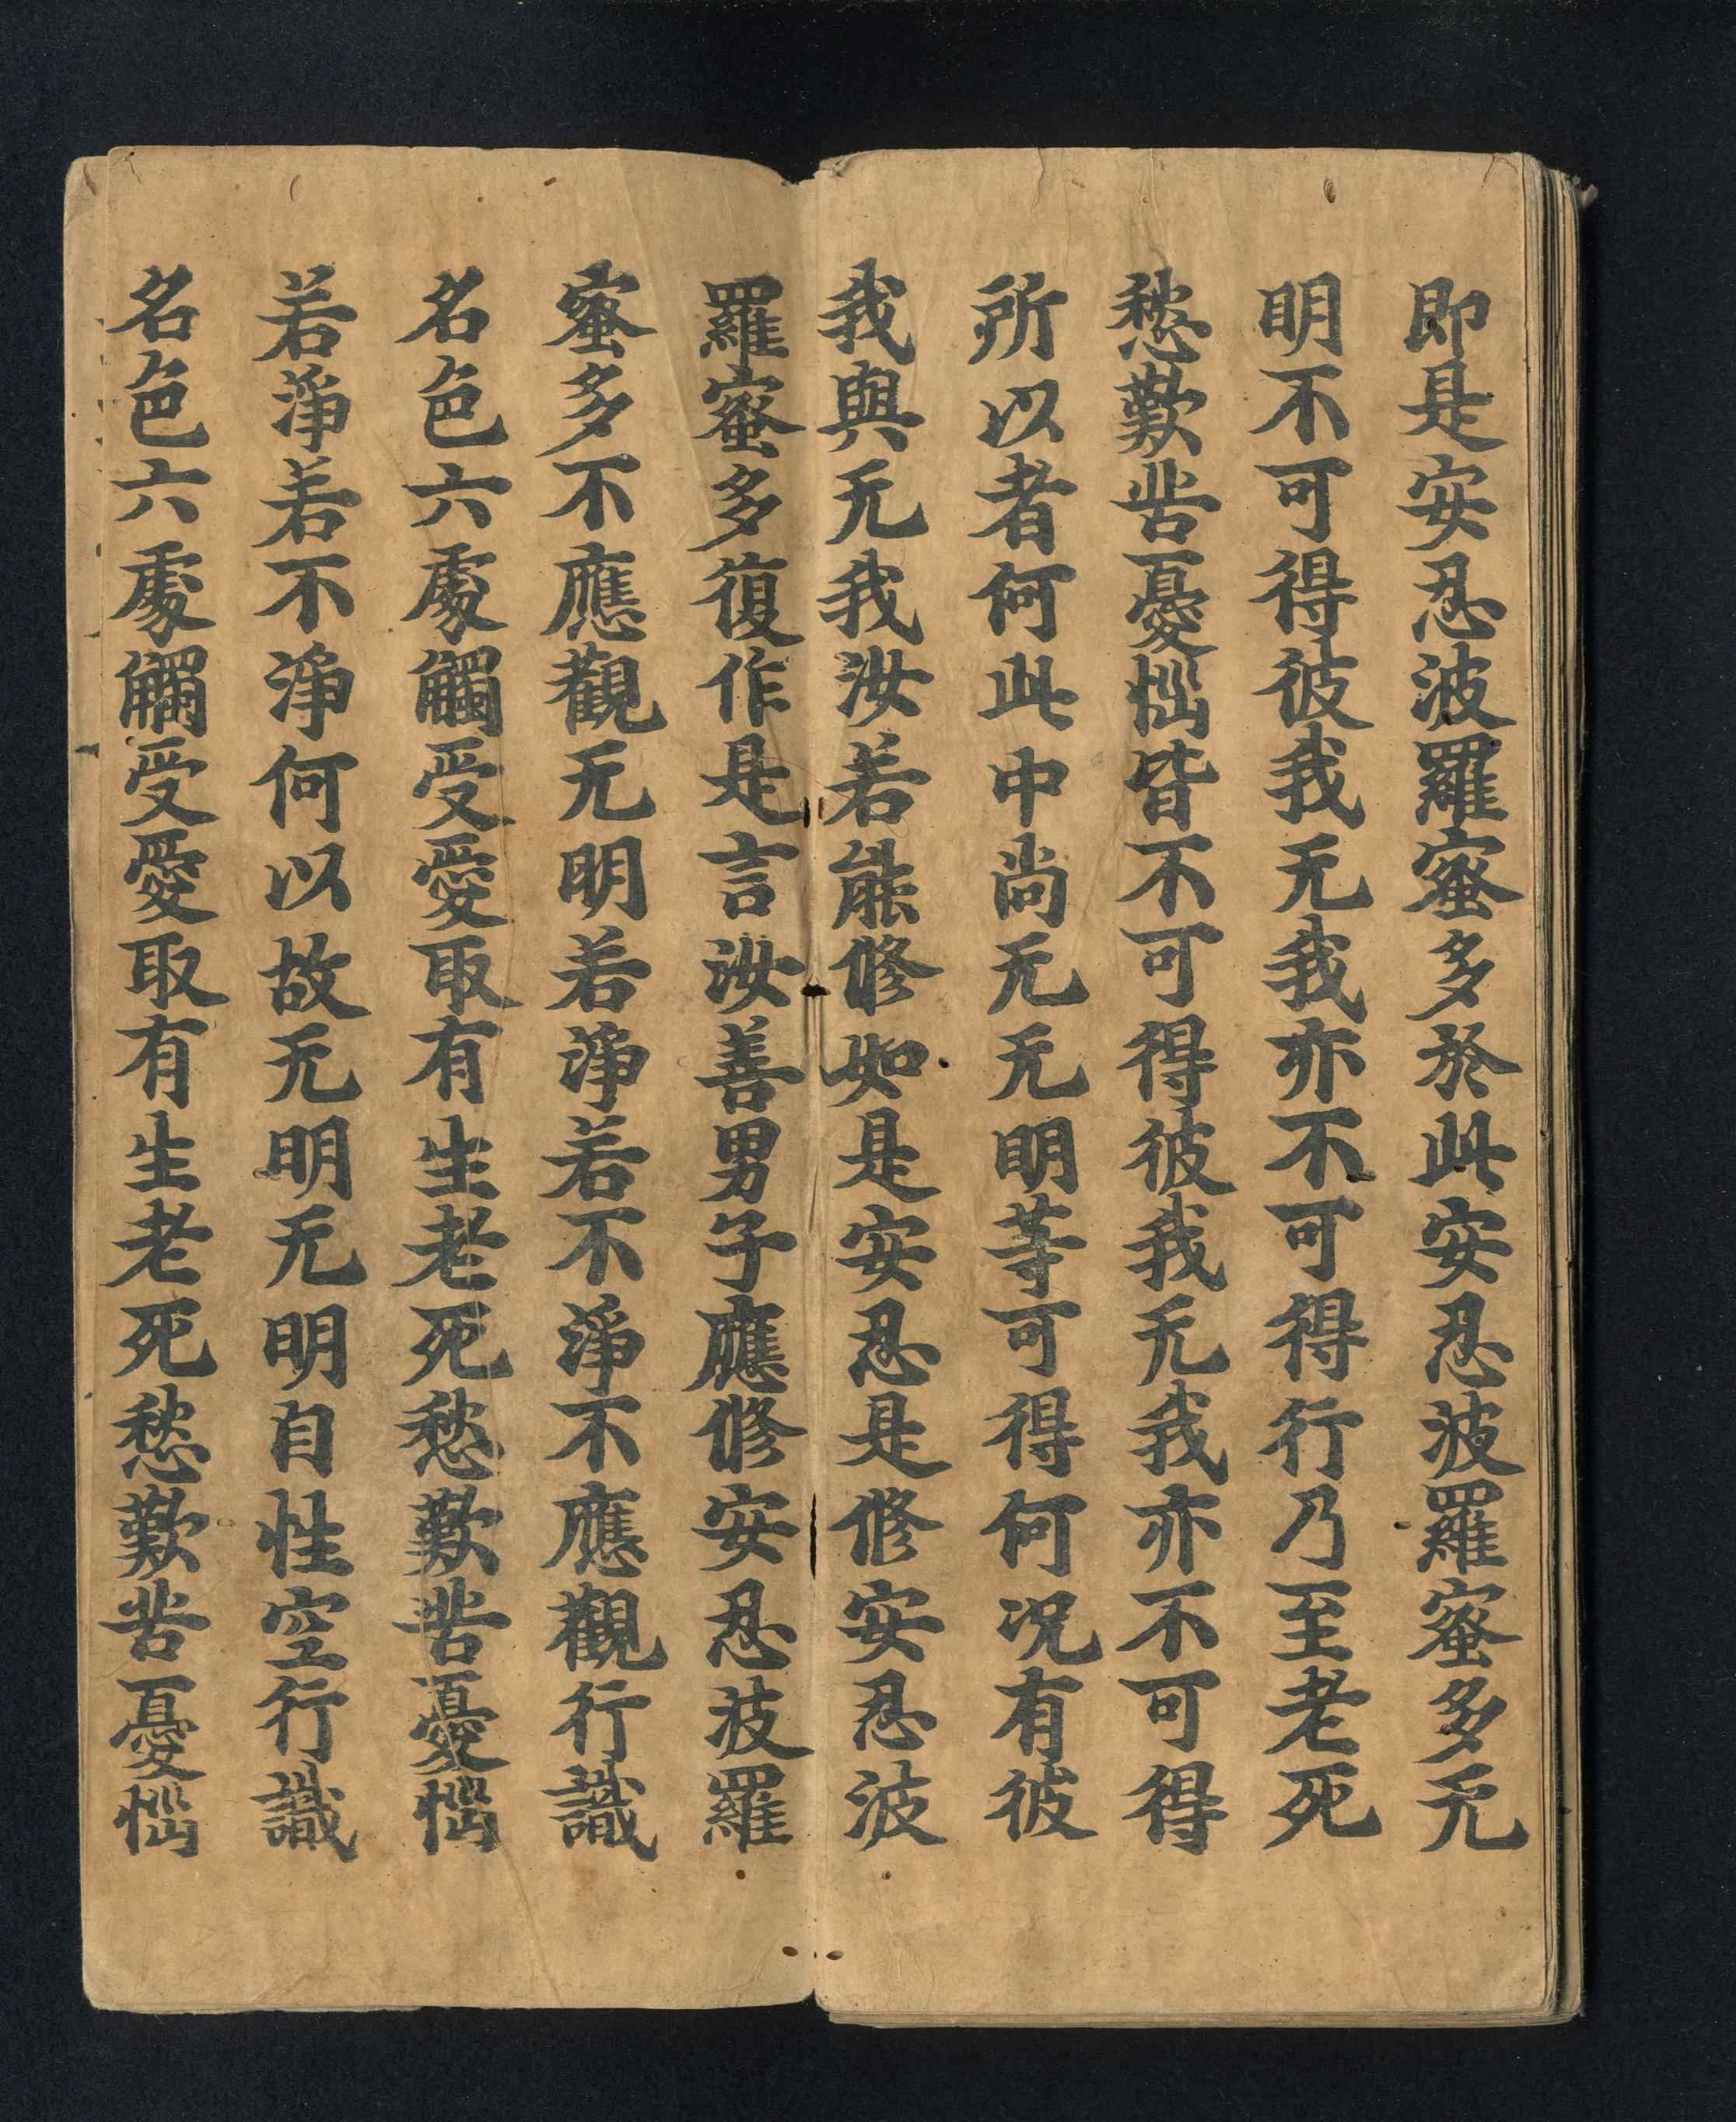 即是安忍波羅蜜多於此安忍波羅蜜多无
明不可得彼我无我亦不可得行乃至老死
愁歎苦憂惱皆不可得彼我无我亦不可得
所以者何此中尚无无明等可得何况有彼
我與无我汝若能修如是安忍是修安忍波
羅蜜多復作是言汝善男子應修安忍波羅
蜜多不應觀无明若淨若不淨不應觀行識
名色六處觸受愛取有生老死愁歎苦憂惱
若淨若不淨何以故无明无明自性空行識
名色六處觸受愛取有生老死愁歎苦憂惱